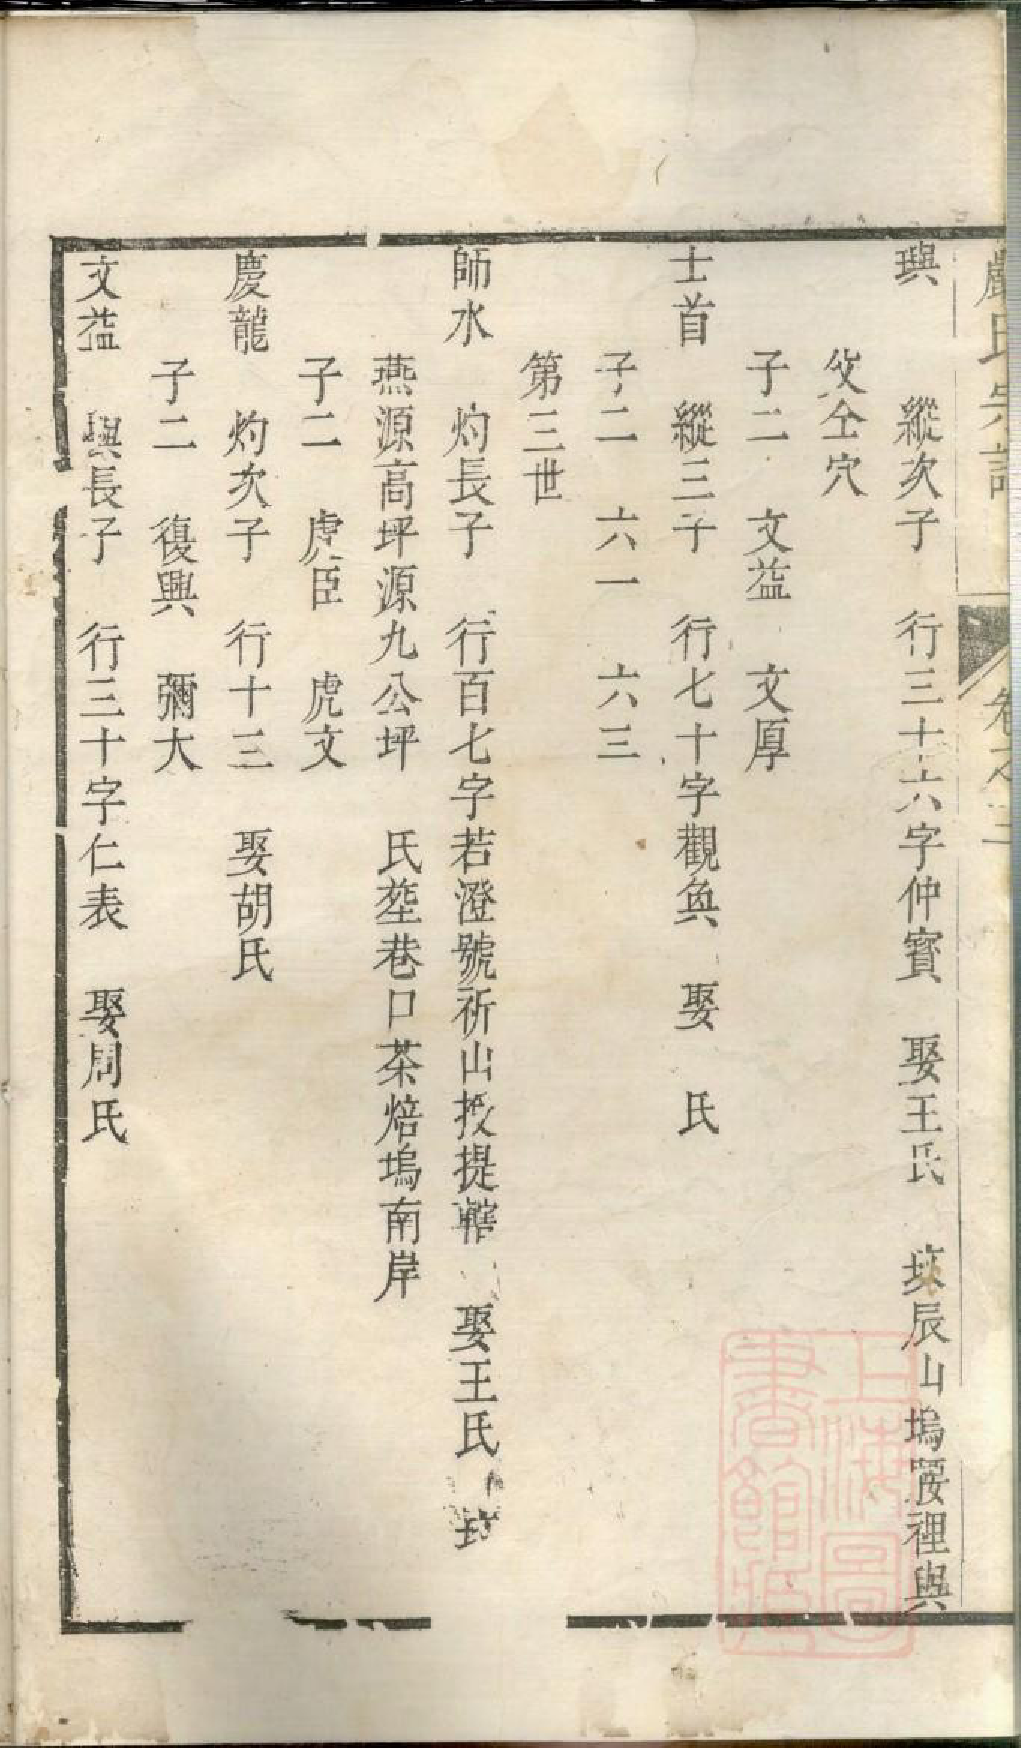 嚴氏宗譜 卷之三
璵 縱次子 行三十六字仲寶 娶王氏 塟辰山塢腰裡與
父仝穴
子二 文益 文厚
士首 縱三子 行七十字觀奐 娶 氏
子二 六一 六三
第三世
師水 灼長子 行百七字若澄號祈山授提轄 娶王氏 塟
燕源高坪源九公坪 氏塟巷口茶焙塢南岸
子二 虎臣 虎文
慶龍 灼次子 行十三 娶胡氏
子二 復興 彌大
文益 璵長子 行三十字仁表 娶周氏
上海圖書館藏